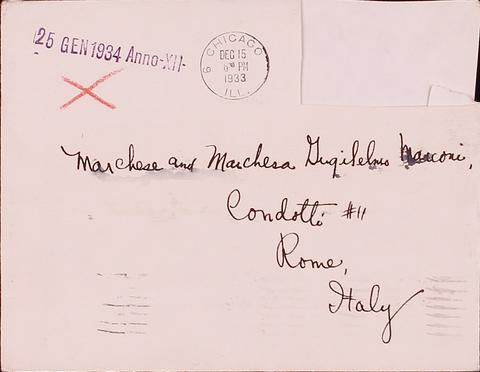 25 GEN 1934 Anno-XII-
CHICAGO
6
DEC 15
6³⁰ PM
1933
ILL.
Marchese and Marchesa Guglielmo Marconi,
Condotti #11
Rome,
Italy